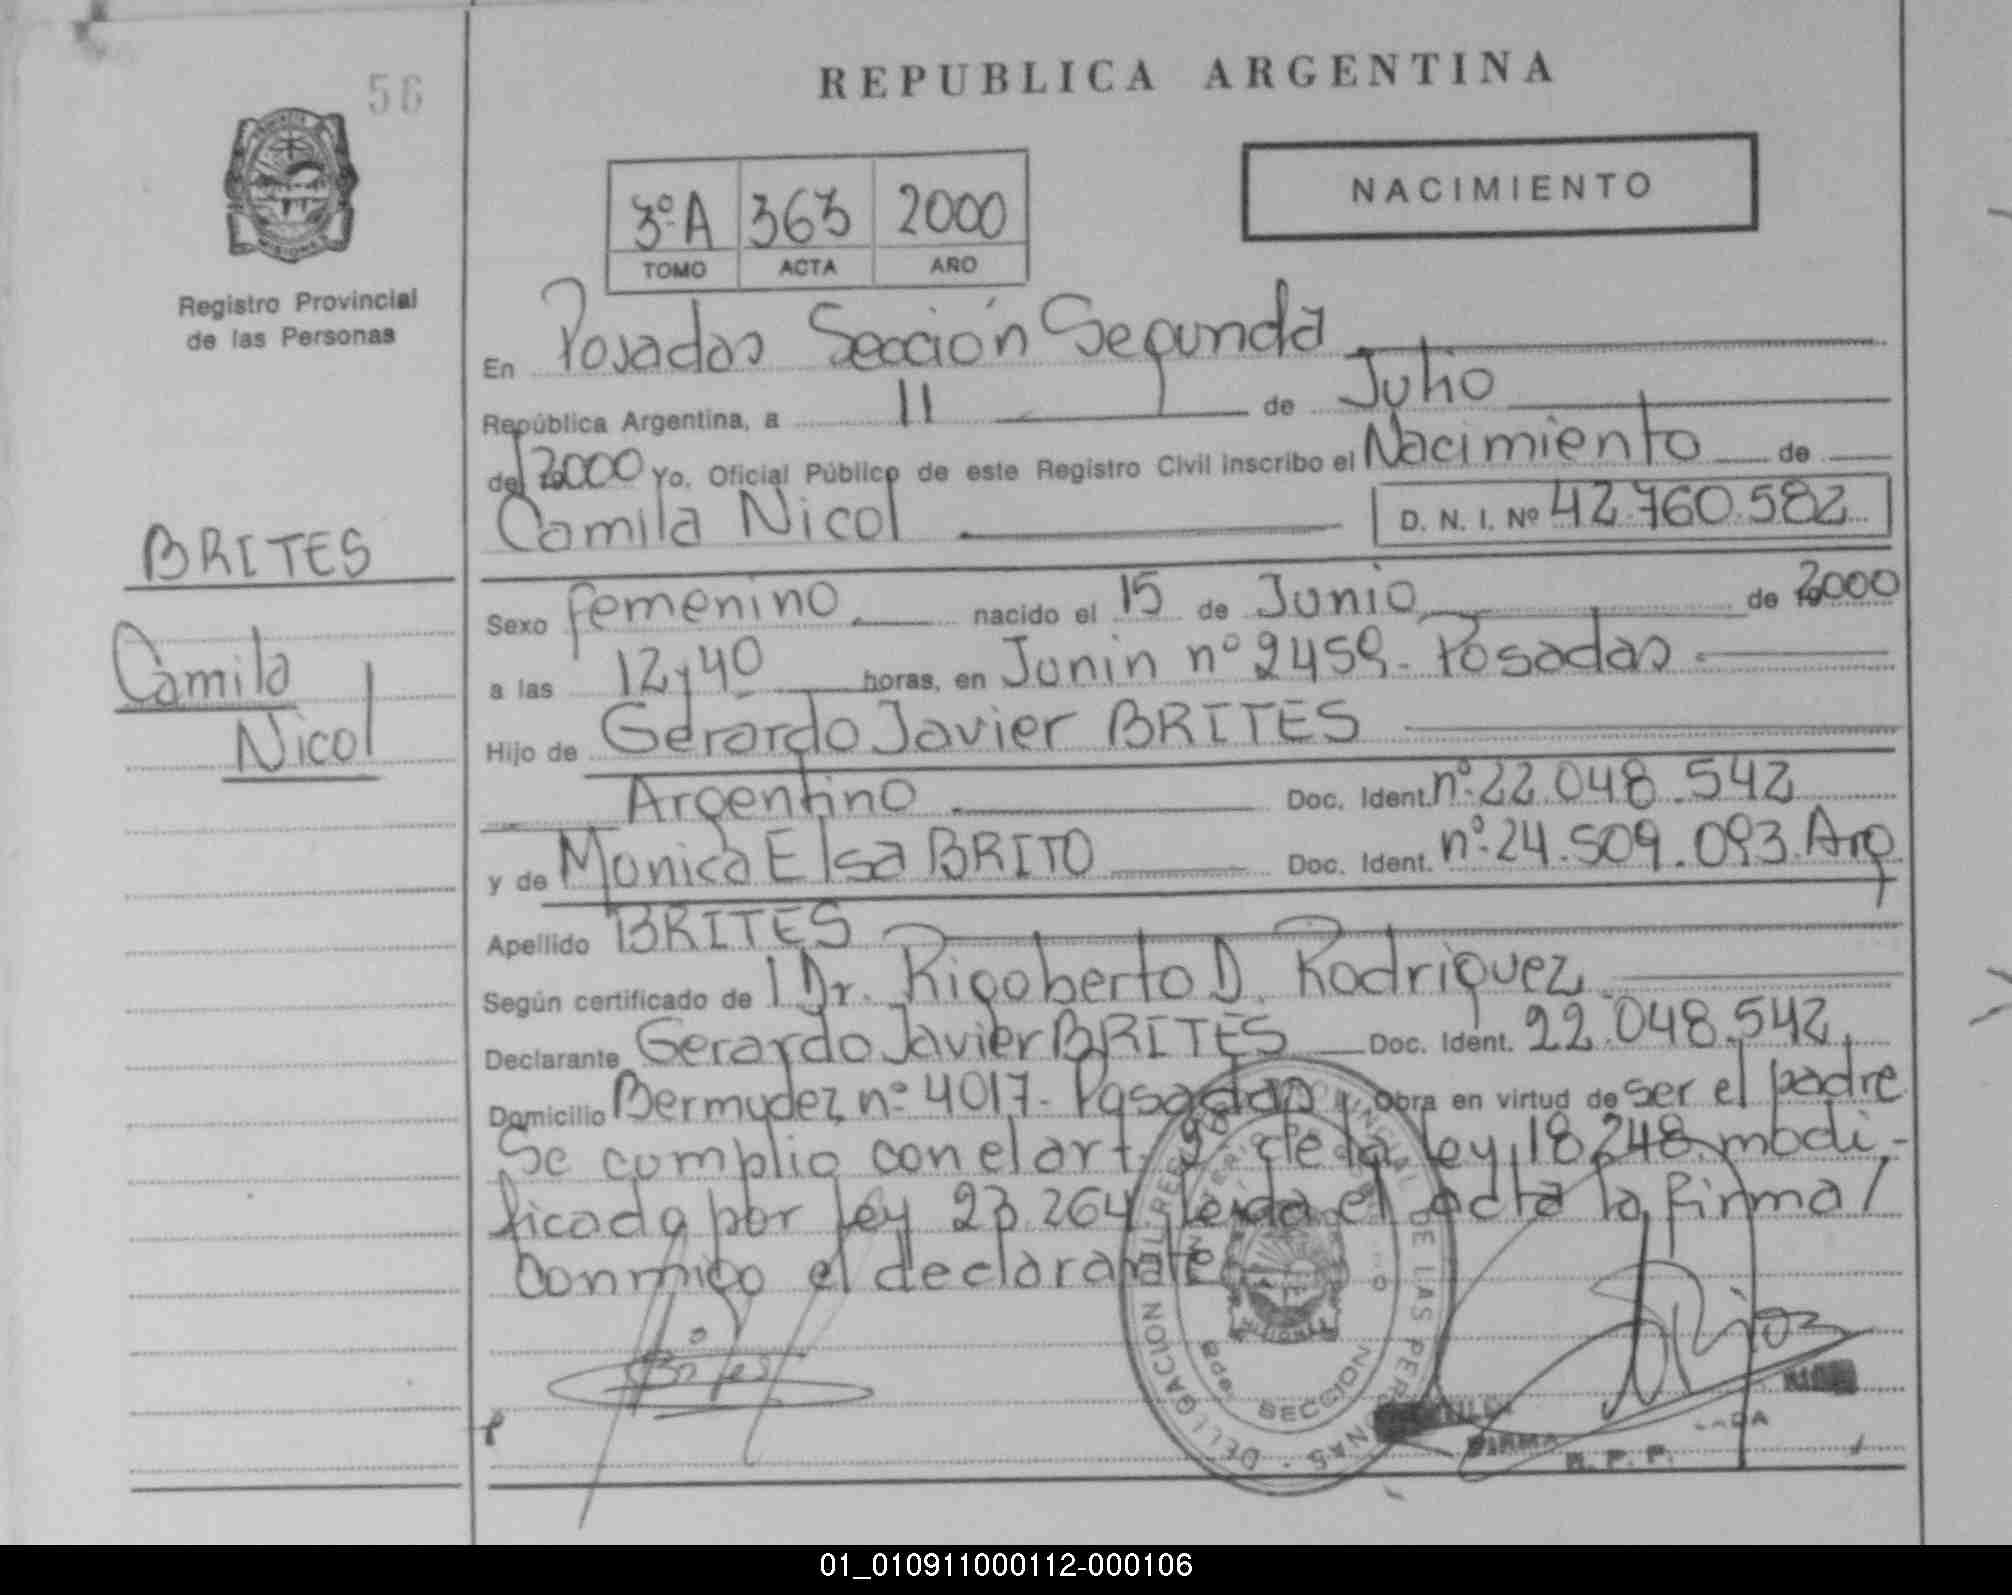 56
REPUBLICA ARGENTINA
NACIMIENTO
3º A 363 2000
TOMO ACTA AÑO
Registro Provincial
de las Personas
En Posadas Sección Segunda
República Argentina, a 11 de Julio
del 2000 Yo, Oficial Público de este Registro Civil inscribo el Nacimiento de
Camila Nicol D. N. I. Nº 42.760.582
BRITES
Camila
Nicol
Sexo femenino nacido el 15 de Junio de 2000
a las 12 y 40 horas, en Junin nº 2459 - Posadas -
Hijo de Gerardo Javier BRITES
Argentino Doc. Ident. nº 22.048.542
y de Monica Elsa BRITO Doc. Ident. nº 24.509.093. Arg
Apellido BRITES
Según certificado de Dr. Rigoberto D. Rodriguez
Declarante Gerardo Javier BRITES Doc. Ident. 22.048.542
Domicilio Bermudez nº 4017 - Posadas y Obra en virtud de ser el padre
Se cumplio con el art. de la ley 18.248 modi-
ficada por ley 23.264 leida el acta la firma/
conmigo el declarante
Brites
Rios
DELEGACION DE LAS PERSONAS
SECCION
FIRMA
R. P. P.
01_010911000112-000106